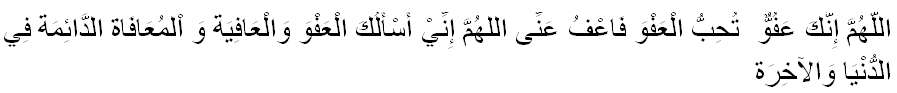 اللّهُمَّ إِنَّكَ عَفُوٌّ تُحِبُّ الْعَفْوَ فَاعْفُ عَنِّى اللهُمَّ إِنِّيْ أَسْأَلُكَ الْعَفْوَ وَالْعَافِيَة وَ الْمُعَافاة الدَّائِمَة فِي
الدُّنْيَا وَالآخِرَة